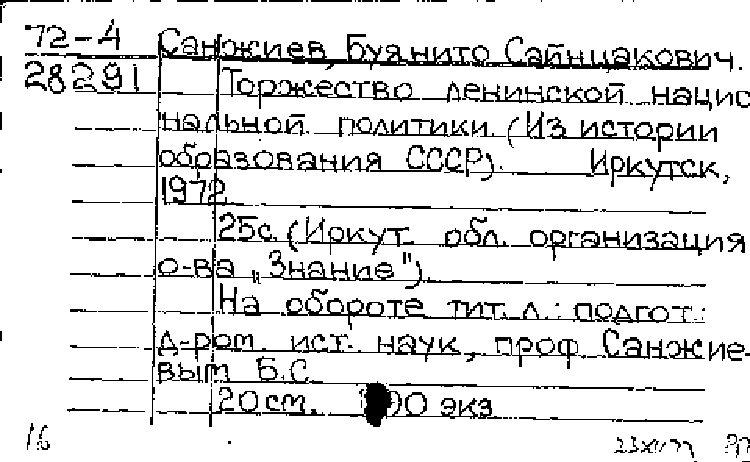 72-4 Санжиев, Буянито Сайнцакович.
28291 Торжество ленинской нацио
нальной политики. (Из истории
образования СССР). Иркутск,
1972.
25с. (Иркут. обл. организация
о-ва „Знание").
На обороте тит. л.: подгот.:
д-ром ист. наук, проф. Санжие-
вым Б.С.
20 см. экз
16